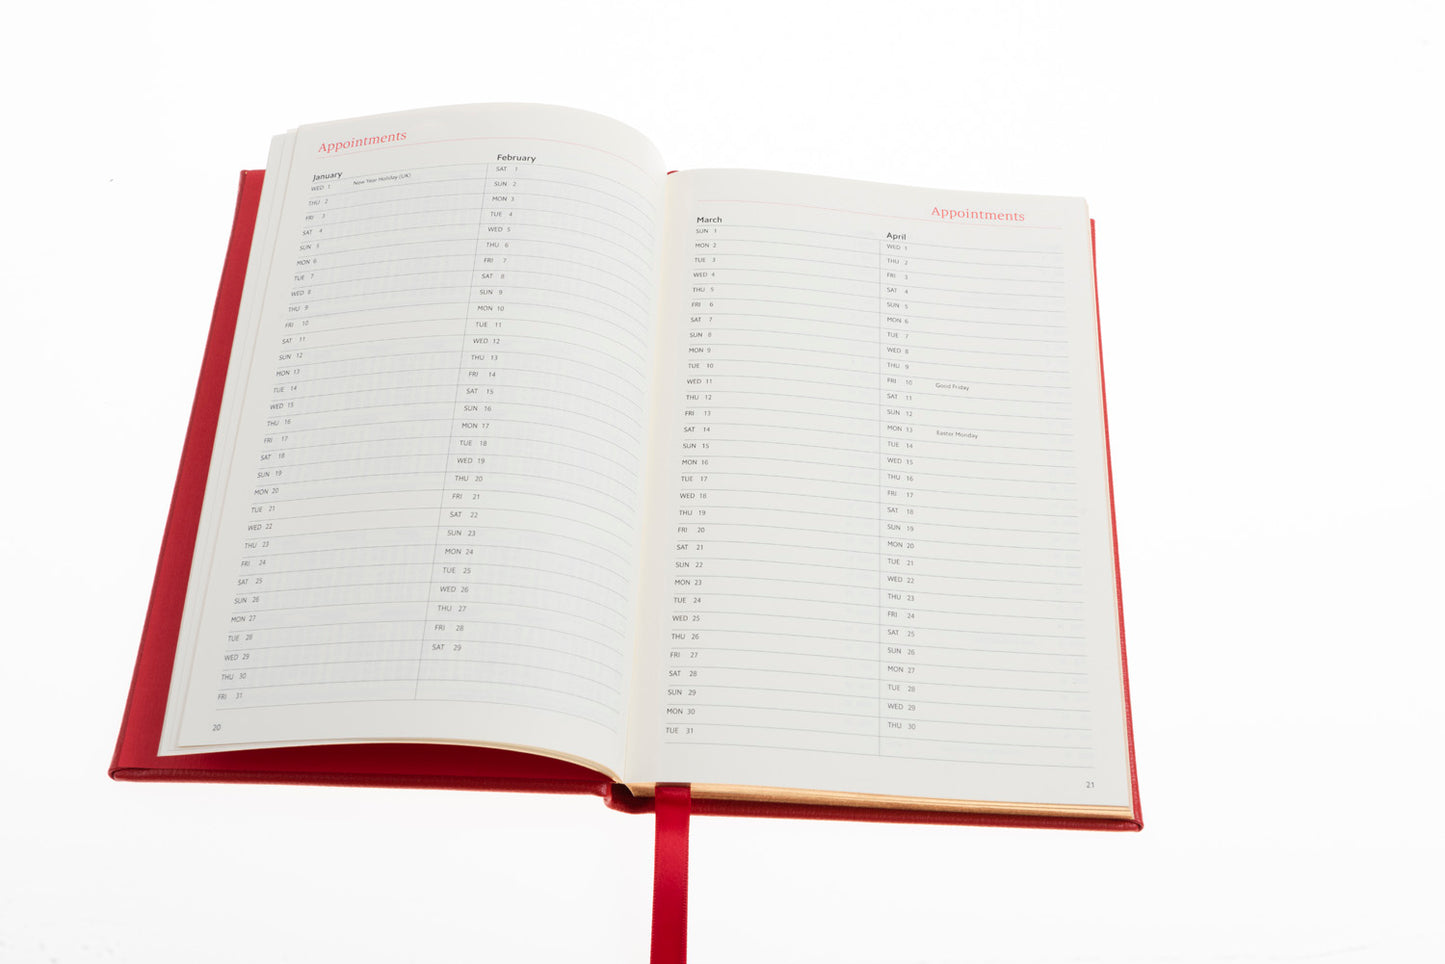 Appointments
January
WED 1 New Year Holiday (UK)
THU 2
FRI 3
SAT 4
SUN 5
MON 6
TUE 7
WED 8
THU 9
FRI 10
SAT 11
SUN 12
MON 13
TUE 14
WED 15
THU 16
FRI 17
SAT 18
SUN 19
MON 20
TUE 21
WED 22
THU 23
FRI 24
SAT 25
SUN 26
MON 27
TUE 28
WED 29
THU 30
FRI 31
20
February
SAT 1
SUN 2
MON 3
TUE 4
WED 5
THU 6
FRI 7
SAT 8
SUN 9
MON 10
TUE 11
WED 12
THU 13
FRI 14
SAT 15
SUN 16
MON 17
TUE 18
WED 19
THU 20
FRI 21
SAT 22
SUN 23
MON 24
TUE 25
WED 26
THU 27
FRI 28
SAT 29
Appointments
March
SUN 1
MON 2
TUE 3
WED 4
THU 5
FRI 6
SAT 7
SUN 8
MON 9
TUE 10
WED 11
THU 12
FRI 13
SAT 14
SUN 15
MON 16
TUE 17
WED 18
THU 19
FRI 20
SAT 21
SUN 22
MON 23
TUE 24
WED 25
THU 26
FRI 27
SAT 28
SUN 29
MON 30
TUE 31
April
WED 1
THU 2
FRI 3
SAT 4
SUN 5
MON 6
TUE 7
WED 8
THU 9
FRI 10 Good Friday
SAT 11
SUN 12
MON 13 Easter Monday
TUE 14
WED 15
THU 16
FRI 17
SAT 18
SUN 19
MON 20
TUE 21
WED 22
THU 23
FRI 24
SAT 25
SUN 26
MON 27
TUE 28
WED 29
THU 30
21